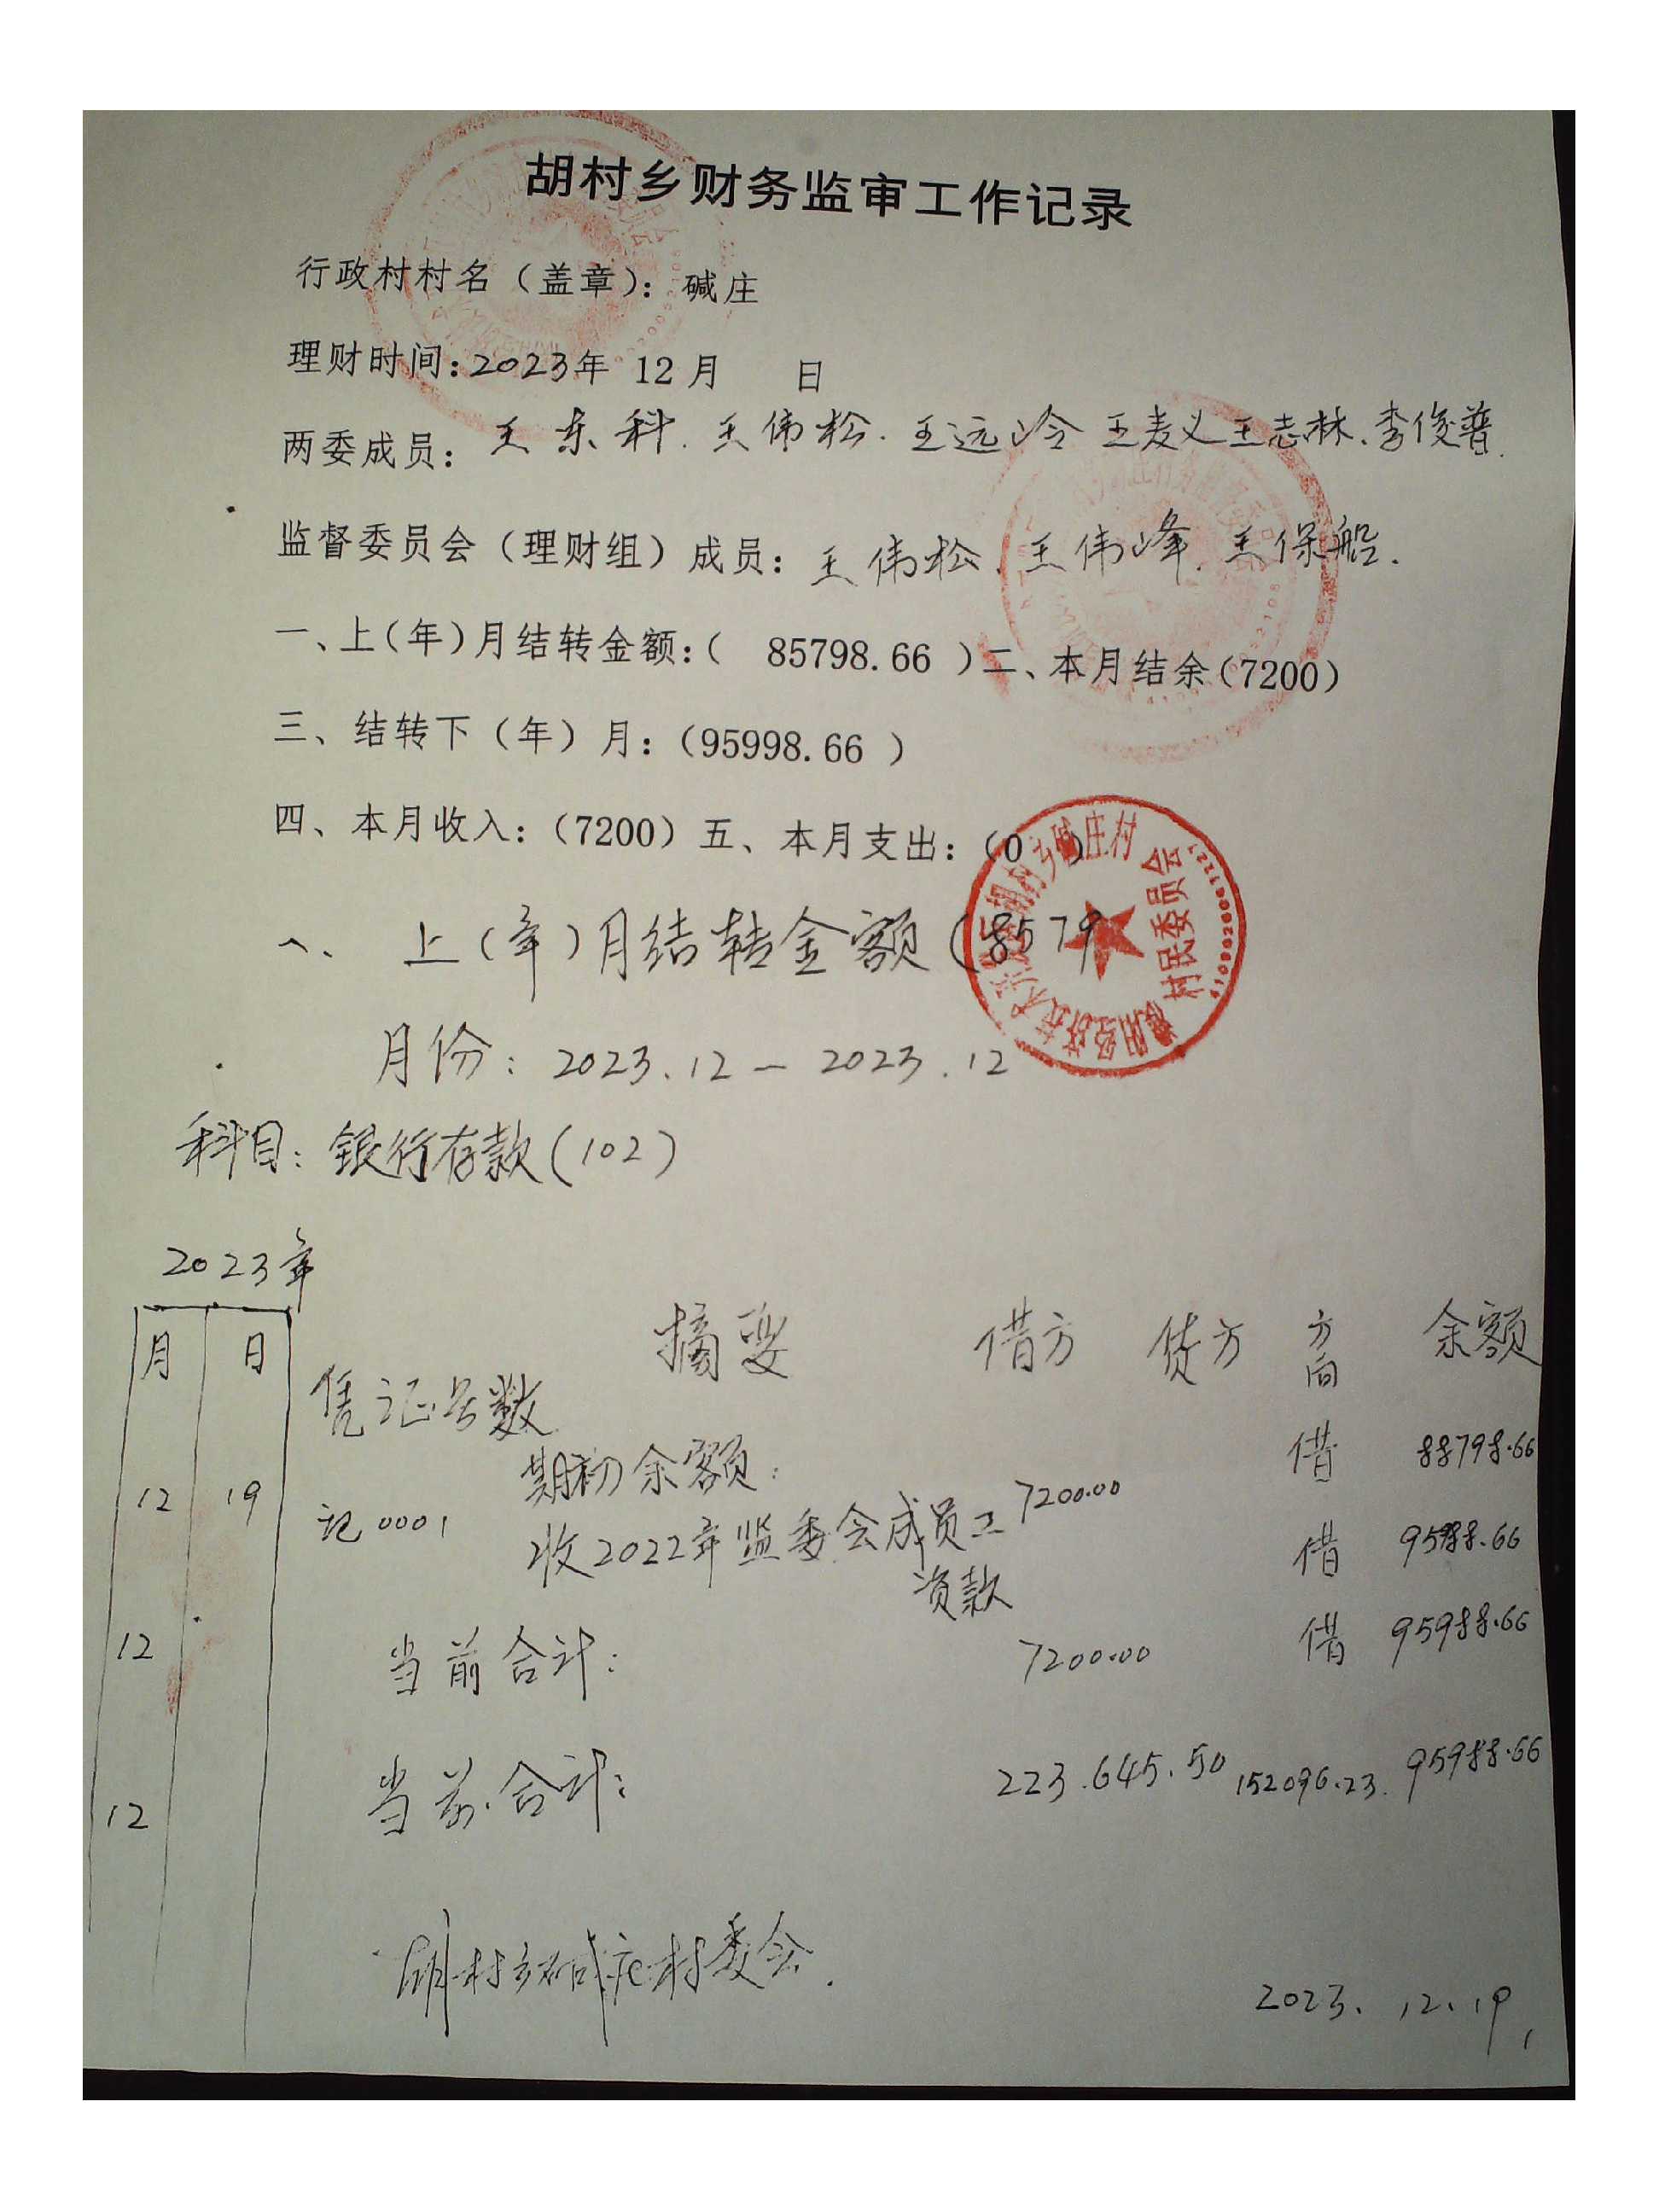 胡村乡财务监审工作记录
行政村村名（盖章）：碱庄
理财时间：2023年 12月 日
两委成员：王东科.王伟松.王远岭 王麦义王志林.李俊普.
监督委员会（理财组）成员：王伟松.王伟峰.王保船.
一、上(年)月结转金额：( 85798.66 )二、本月结余(7200)
三、结转下（年）月：(95998.66 )
四、本月收入：(7200) 五、本月支出：(0 )
上（年）月结转金额（8579
胡村乡碱庄村
村民委员会
月份：2023.12—2023.12
科目：银行存款(102)
2023年
月 日 凭证号数 摘要 借方 贷方 方向 余额
期初余额： 借 88798.66
12 19 记0001 收2022年监委会成员工资款 7200.00 借 95988.66
12 当前合计： 7200.00 借 95988.66
12 当前合计： 223.645.50 152096.23. 95988.66
胡村乡碱庄村委会.
2023.12.19